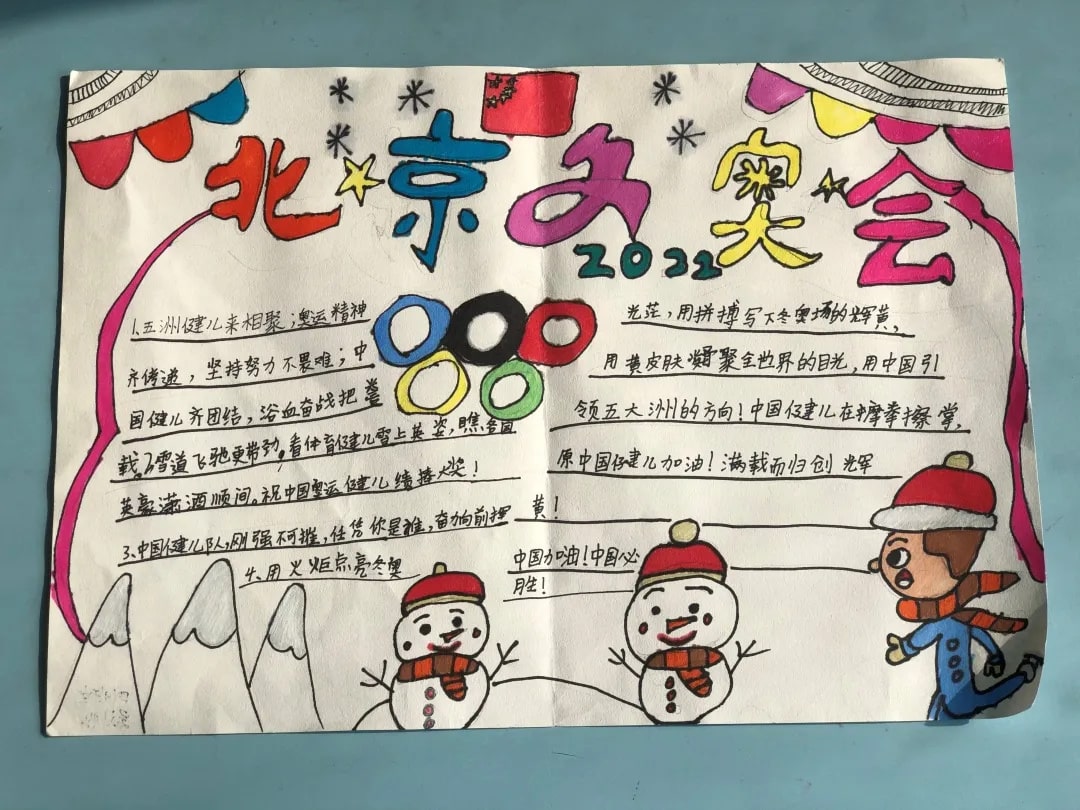 北京冬奥会
2022
1.五洲健儿来相聚；奥运精神
齐传递，坚持努力不畏难；中
国健儿齐团结，浴血奋战把誉
载。2雪道飞驰更带劲，看体育健儿雪上英姿，瞧各国
英豪潇洒顺间。祝中国奥运健儿绩捧火奖！
3、中国健儿队，刚强不可摧，任凭你是谁，奋向前挥
4、用火炬点亮冬奥
光茫，用拼搏写下冬奥场的辉黄，
用黄皮肤凝聚全世界的目光，用中国引
领五大洲的方向！中国健儿在摩拳擦掌，
原中国健儿加油！满载而归创辉
黄！
中国加油！中国必
胜！